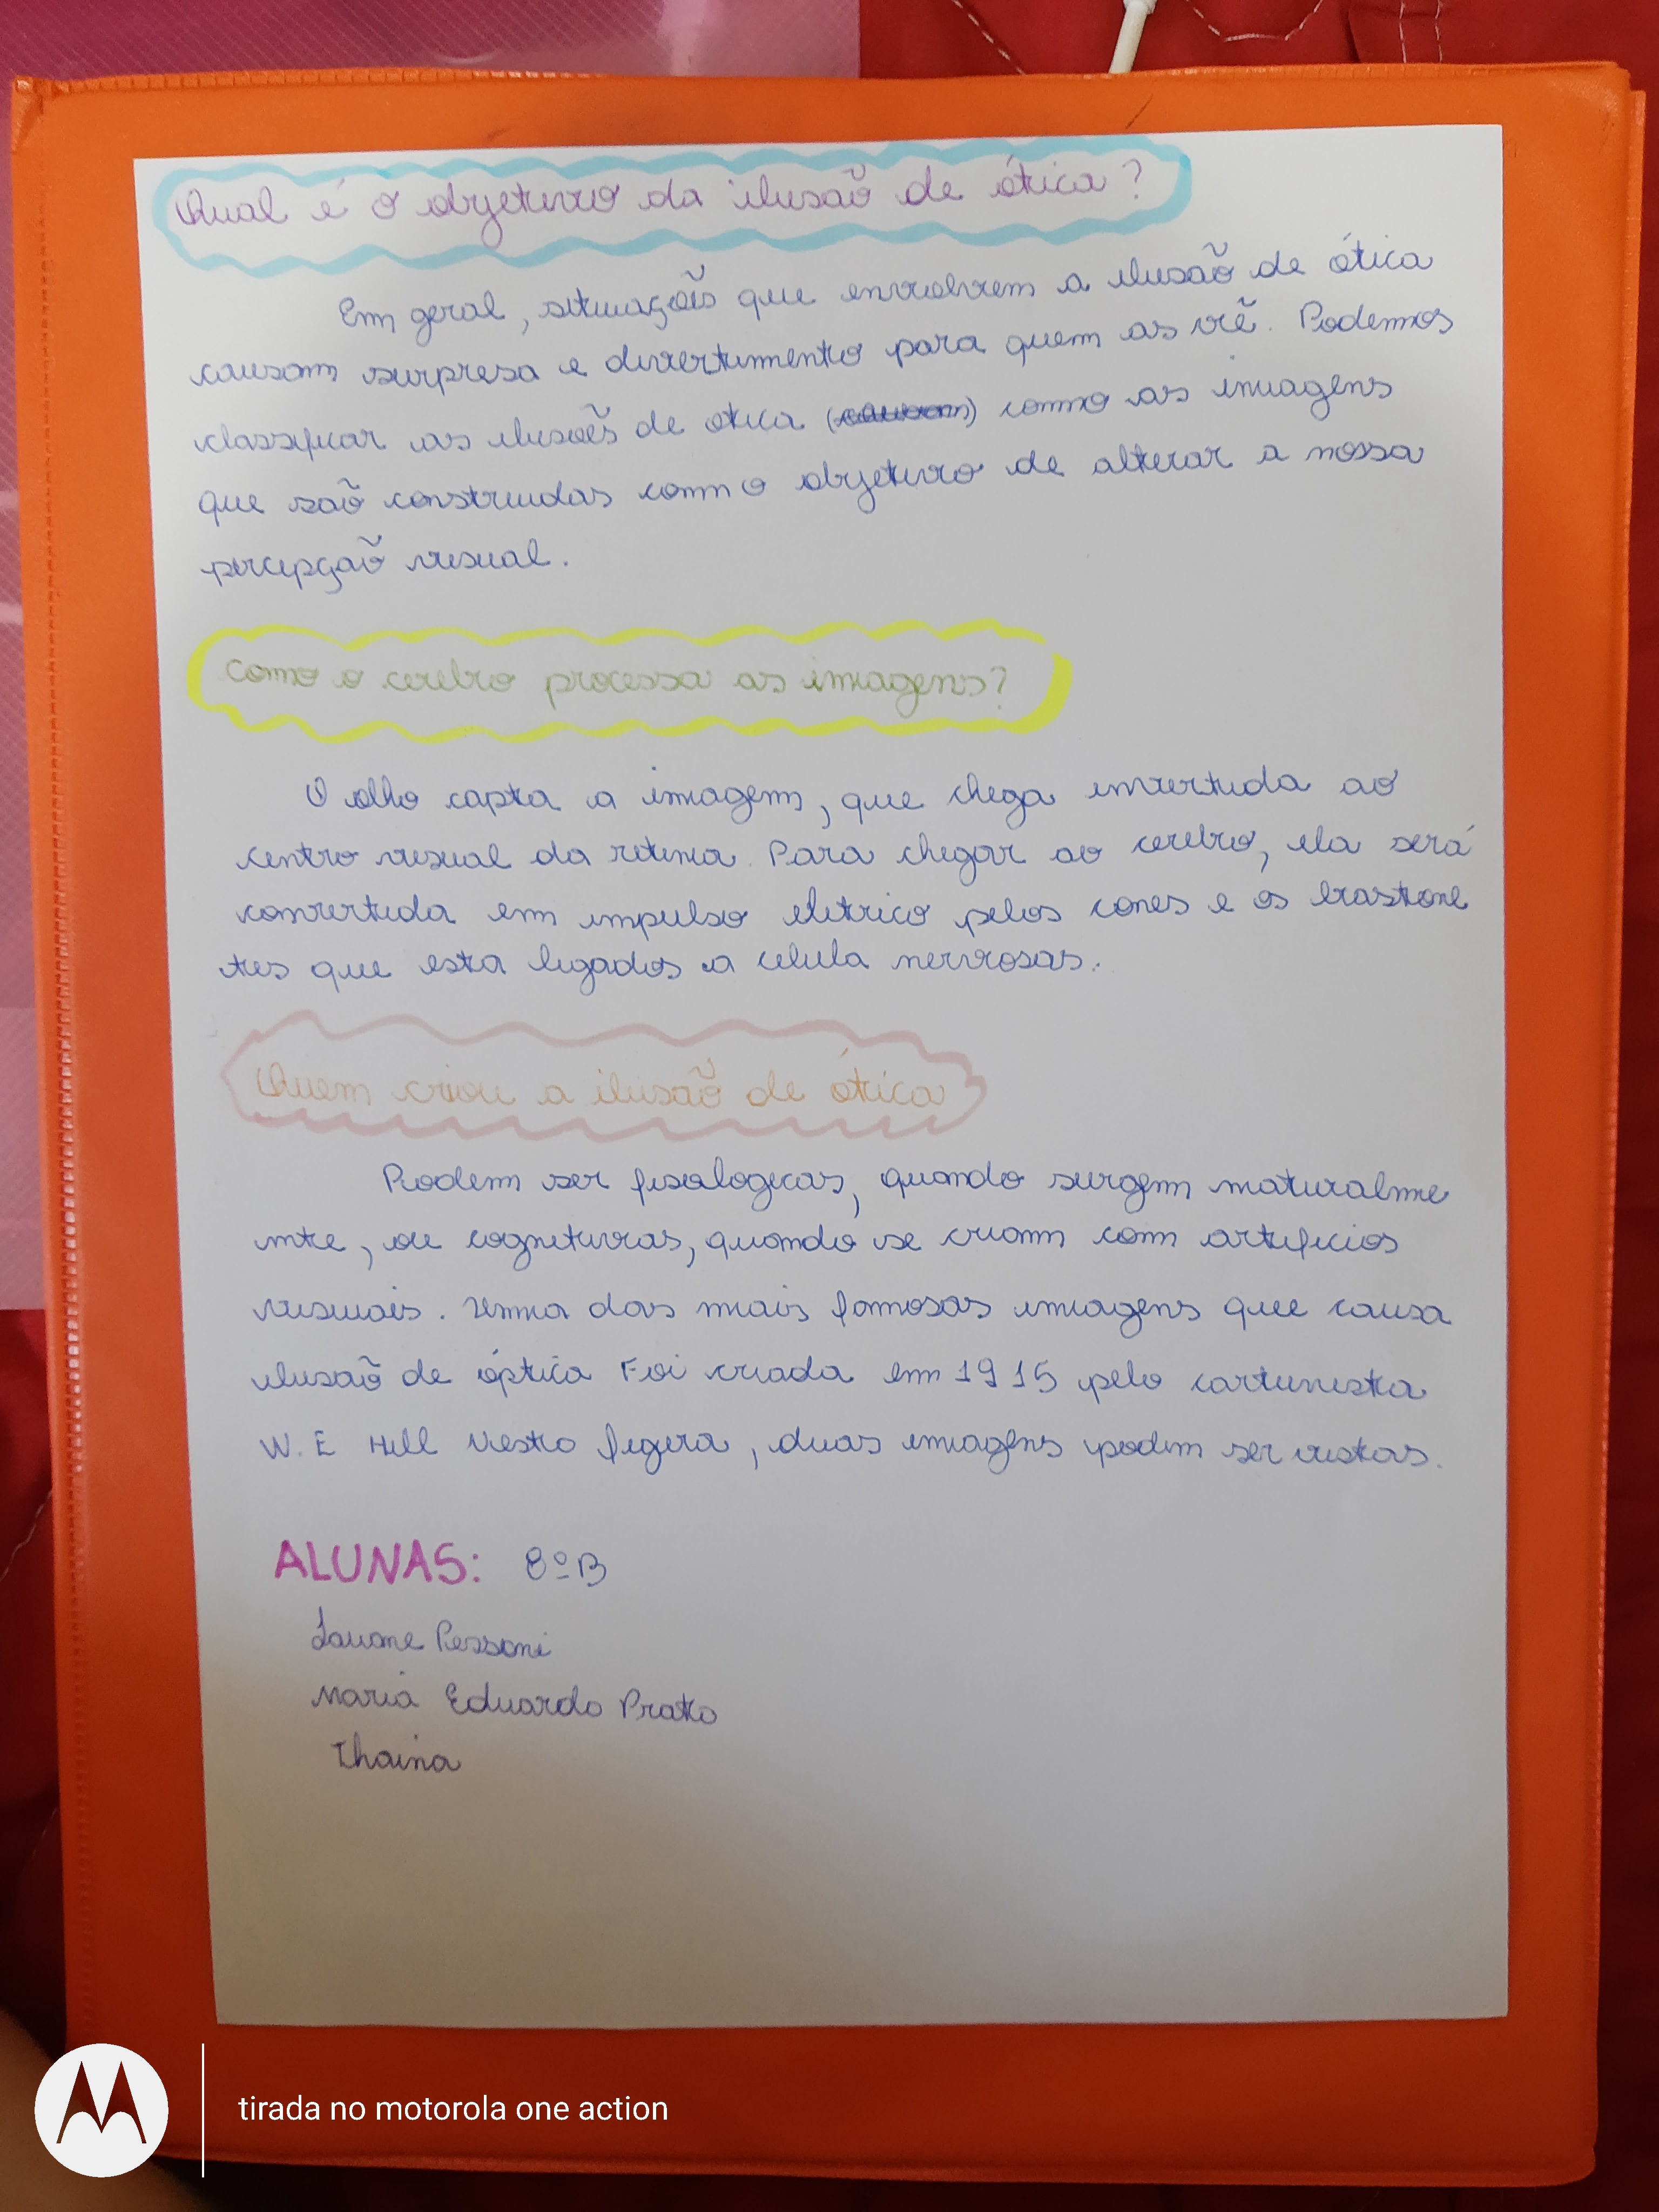 Qual é o objetivo da ilusão de ótica?
Em geral, situações que envolvem a ilusão de ótica
causam surpresa e divertimento para quem as vê. Podemos
classificar as ilusões de otica (causam) como as imagens
que são construidas com o objetivo de alterar a nossa
percepção visual.
Como o cerebro processa as imagens?
O olho capta a imagem, que chega invertida ao
centro visual da retina. Para chegar ao cerebro, ela será
convertida em impulso eletrico pelos cones e os bastone
tes que esta ligados a celula nervosas.
Quem criou a ilusão de ótica
Podem ser fisiologicas, quando surgem naturalme
nte, ou cognitivas, quando se criam com artificios
visuais. Uma das mais famosas imagens que causa
ilusão de óptica Foi criada em 1915 pelo cartunista
W. E Hill Nesta figura, duas imagens podem ser vistas.
ALUNAS: 8ºB
Pessoni
Maria Eduarda Prato
Thaina
tirada no motorola one action